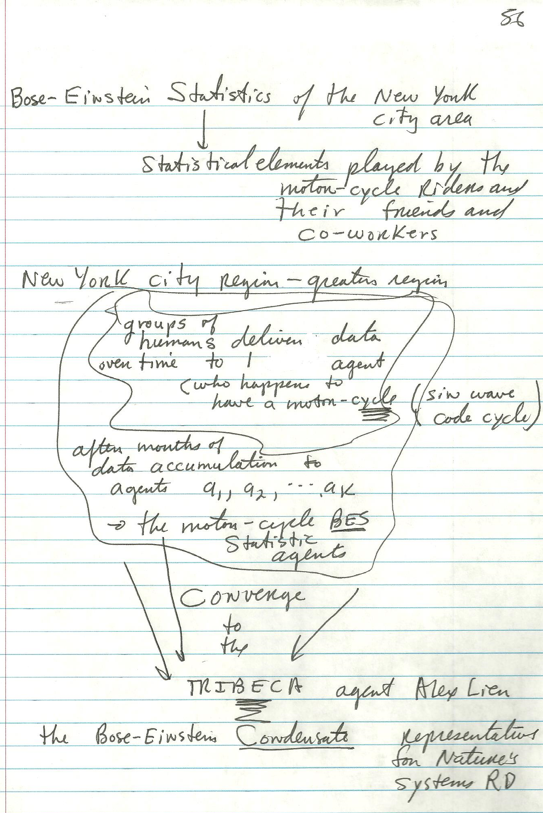 56
Bose-Einstein Statistics of the New York
city area
Statistical elements played by the
motor-cycle Riders and
their friends and
co-workers
New York city Region - greaters region
groups of
humans deliver data
over time to 1 agent
(who happens to
have a motor-cycle (sin wave
code cycle)
after months of
data accumulation to
agents a1, a2, ... ak
→ the motor-cycle BES
Statistic
agents
Converge
to
the
TRIBECA agent Alex Lien
the Bose-Einstein Condensate representative
for Nature's
Systems RD